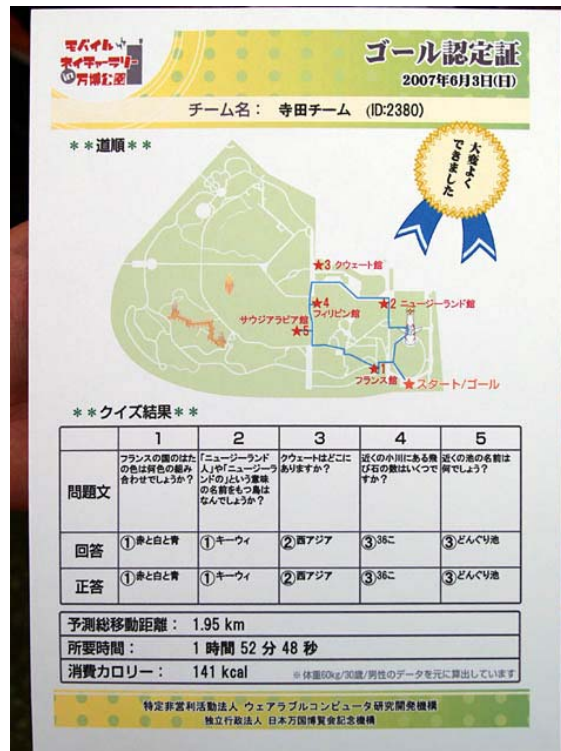 モバイル
ネイチャーラリー
in 万博公園
ゴール認定証
2007年6月3日(日)
チーム名： 寺田チーム (ID:2380)
＊＊道順＊＊
大変よく
できました
★3 クウェート館
★4
フィリピン館
★2 ニュージーランド館
サウジアラビア館
★5
★1
フランス館
★スタート/ゴール
＊＊クイズ結果＊＊
1 2 3 4 5
問題文
フランスの国のはた
の色は何色の組み
合わせでしょうか？
「ニュージーランド
人」や「ニュージーラ
ンドの」という意味
の名前をもつ鳥は
なんでしょうか？
クウェートはどこに
ありますか？
近くの小川にある飛
び石の数はいくつで
すか？
近くの池の名前は
何でしょう？
回答 ①赤と白と青 ①キーウィ ②西アジア ③36こ ③どんぐり池
正答 ①赤と白と青 ①キーウィ ②西アジア ③36こ ③どんぐり池
予測総移動距離： 1.95 km
所要時間： 1 時間 52 分 48 秒
消費カロリー： 141 kcal ※体重60kg/30歳/男性のデータを元に算出しています
特定非営利活動法人 ウェアラブルコンピュータ研究開発機構
独立行政法人 日本万国博覧会記念機構